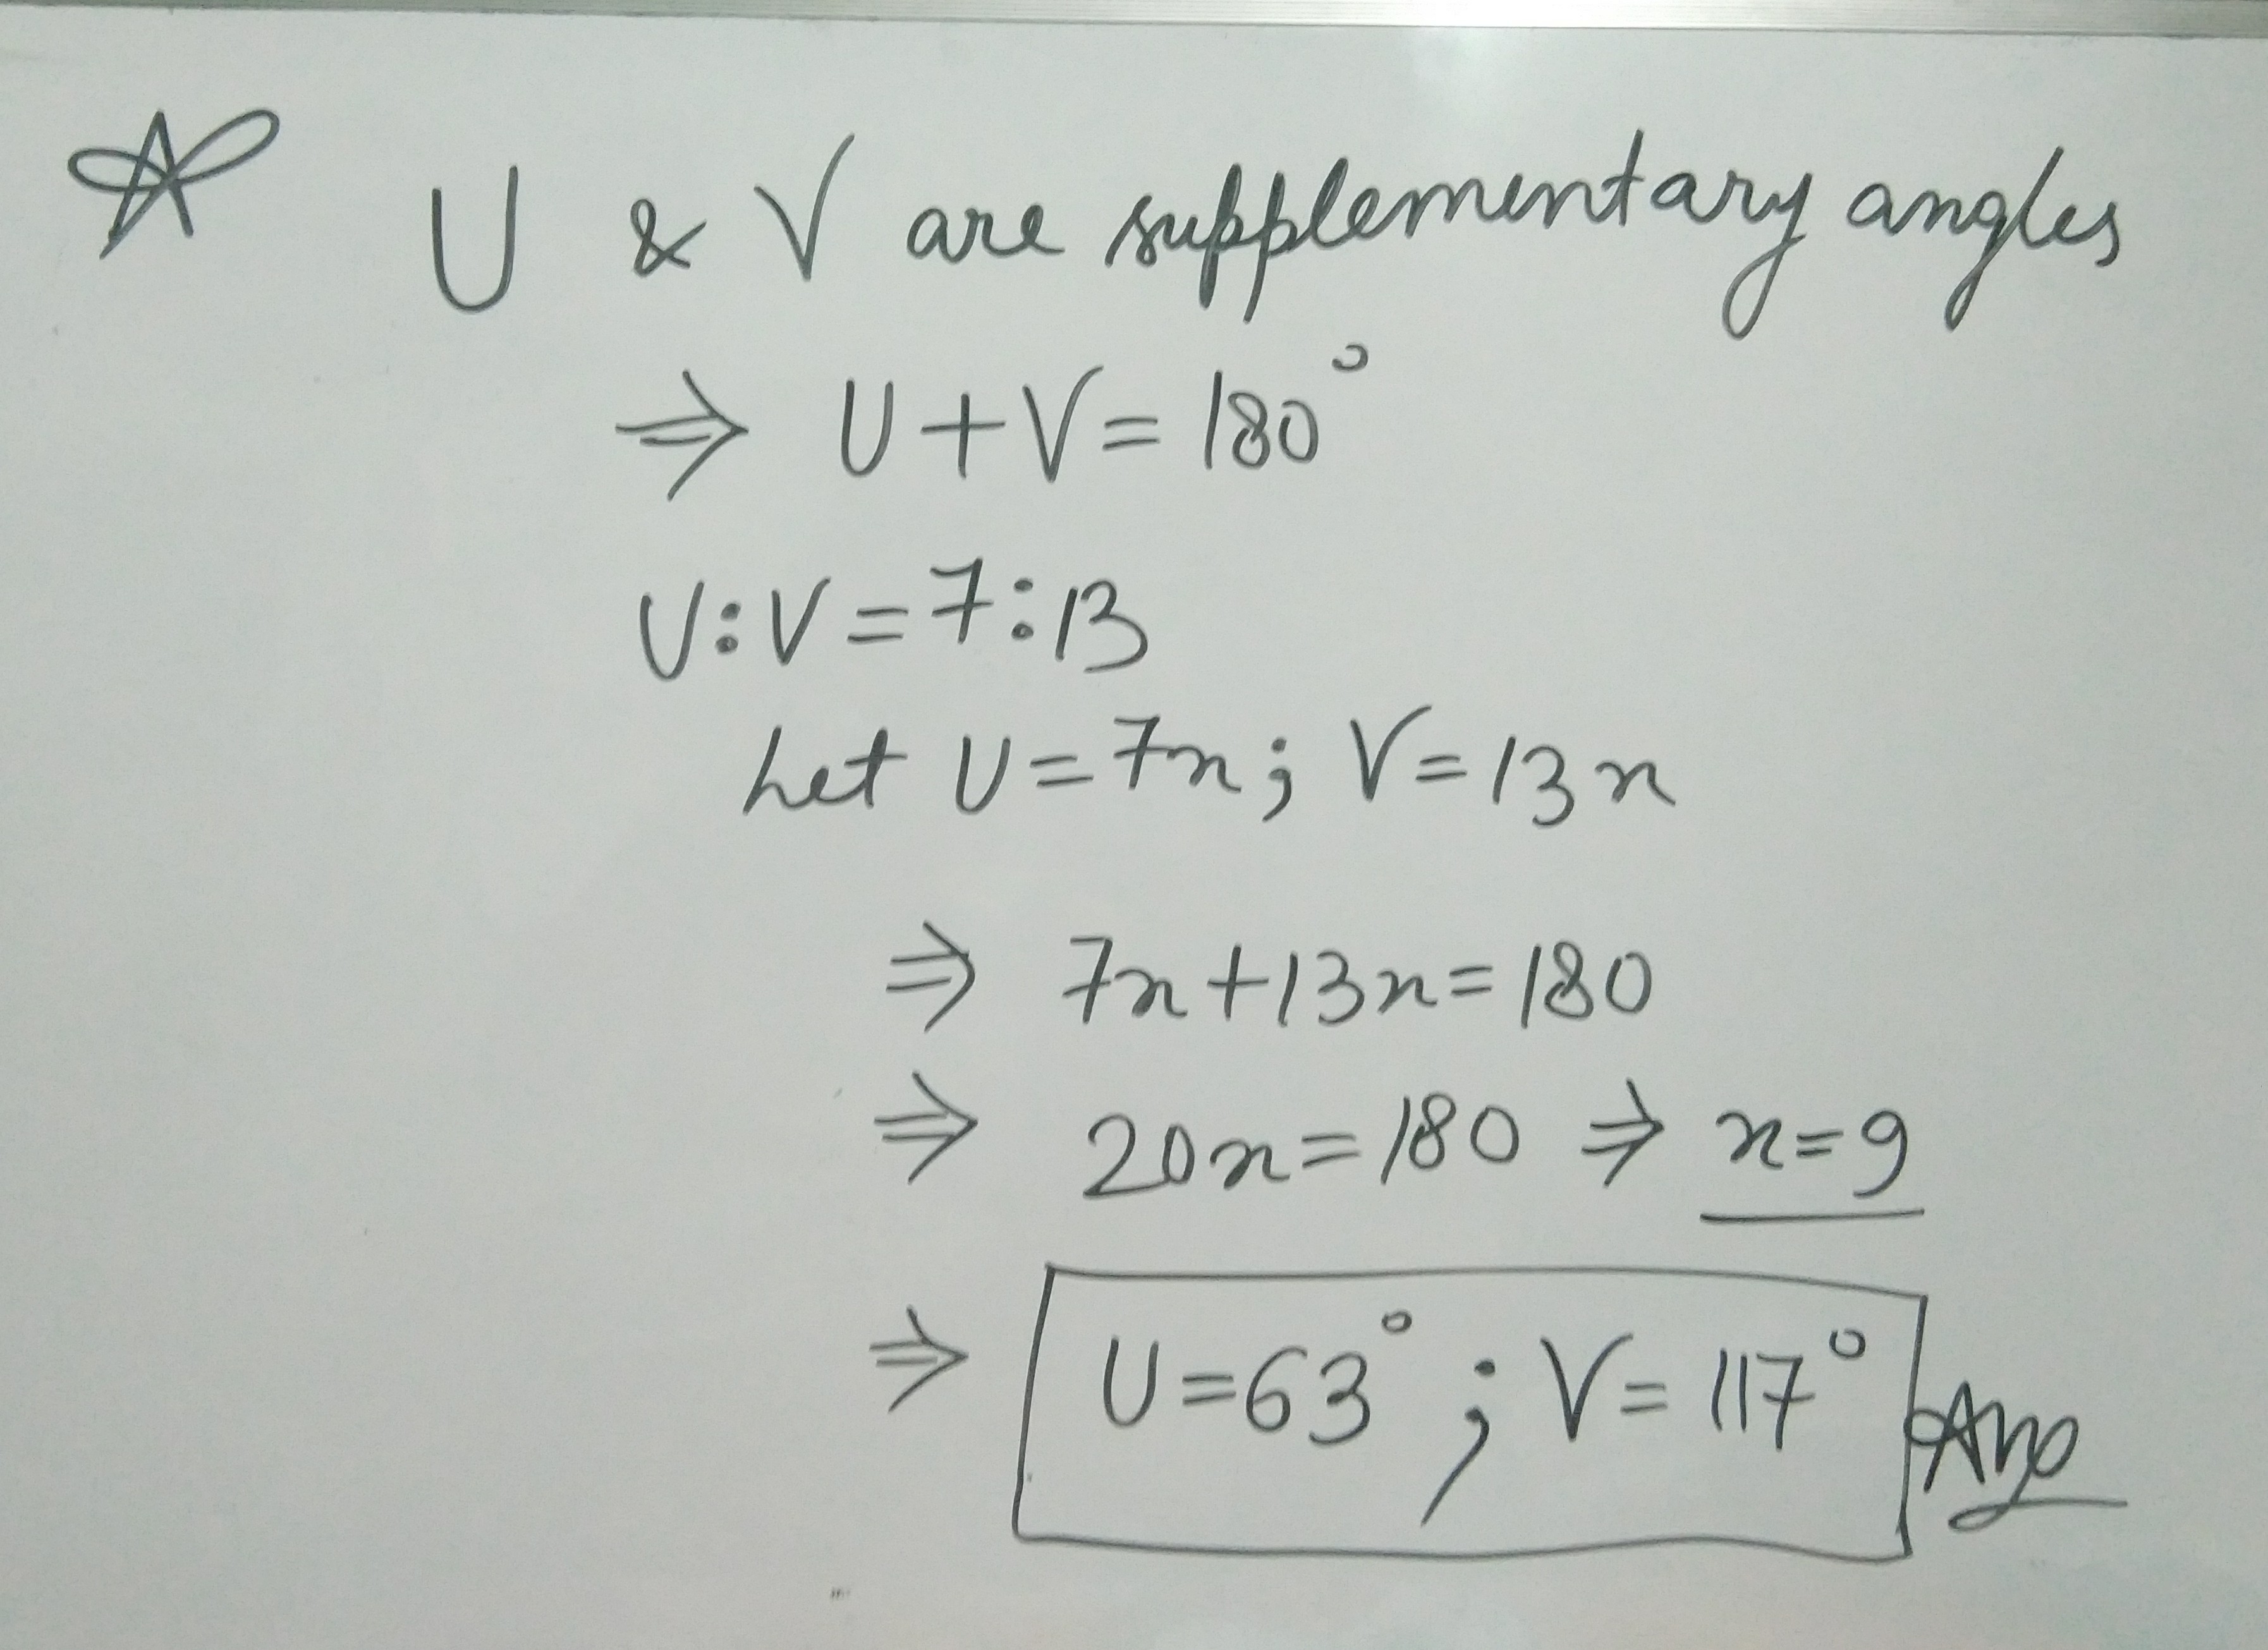 U & V are supplementary angles
⇒ U + V = 180°
U : V = 7 : 13
Let U = 7x ; V = 13x
⇒ 7x + 13x = 180
⇒ 20x = 180 ⇒ x = 9
⇒ U = 63° ; V = 117° Ans